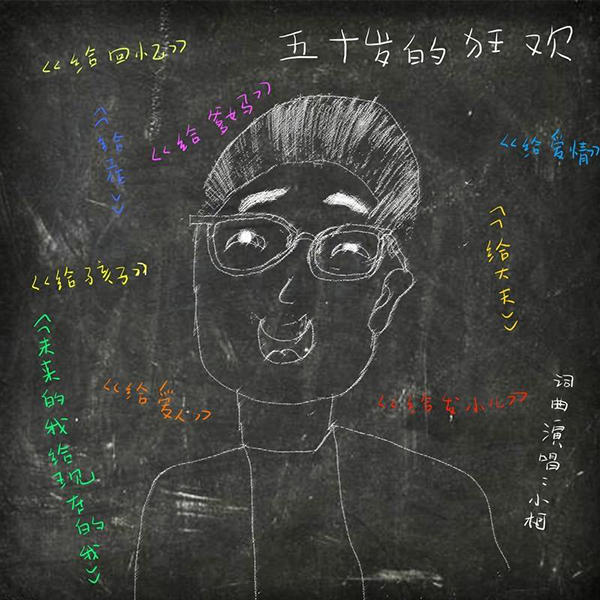 五十岁的狂欢
《给回忆》
《给爹妈》
《给
《给爱情》
《给孩子》
《给大
《未来的我给现在的我》
《给爱人》
《给发小儿》
词曲演唱：小柯